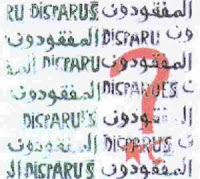 RU DISPARUS المفقودون
المفقودون DISPARU ون
RU DISPARU المفقودون
المفقودون DISPARUES
DISPARUS المفقودون
المفقودون DISPARUS
DISPARUS المفقودون
?